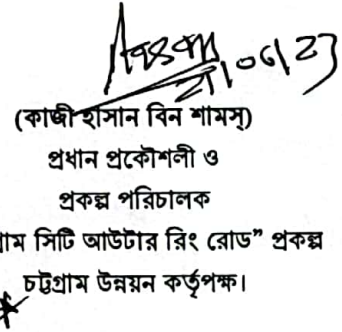 ২১/০৬/২৩
(কাজী হাসান বিন শামস্)
প্রধান প্রকৌশলী ও
প্রকল্প পরিচালক
গ্রাম সিটি আউটার রিং রোড” প্রকল্প
চট্টগ্রাম উন্নয়ন কর্তৃপক্ষ।